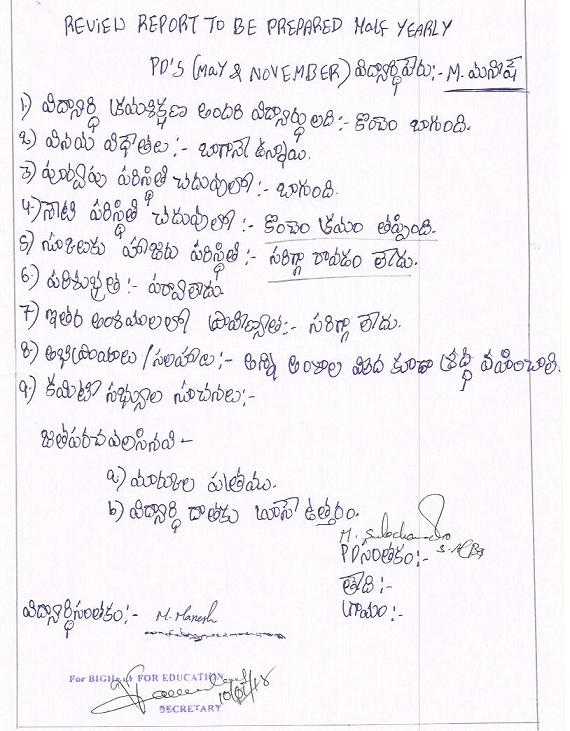 REVIEW REPORT TO BE PREPARED HALF YEARLY
PD'S (MAY & NOVEMBER) విద్యార్థి పేరు:- M. మనీషే
1) విద్యార్థి క్రమశిక్షణ అందరి విద్యార్థులది:- కొంచం బాగుంది.
2) వినయ విధేతలు:- బాగానే ఉన్నాయి.
3) పూర్వపు పరిస్థితి చదువులో:- బాగుంది.
4) నాటి పరిస్థితి చదువులో:- కొంచం క్రమం తప్పింది.
5) స్కూలుకు హాజరు పరిస్థితి:- సరిగ్గా రావడం లేదు.
6) పరిశుభ్రత:- పర్వాలేదు.
7) ఇతర అంశములలో ప్రావీణ్యత:- సరిగ్గా లేదు.
8) అభిప్రాయాలు/సలహాలు:- అన్ని అంశాల మీద కూడా శ్రద్ధ వహించాలి.
9) కమిటీ సభ్యుల సూచనలు:-
జతపరచవలసినవి -
a) మార్కుల పత్రము.
b) విద్యార్థి దాతకు వ్రాసే ఉత్తరం.
M.
PD సంతకం:-
తేది:-
గ్రామం:-
విద్యార్థి సంతకం:- M. Manesh
For BIGH FOR EDUCATION
SECRETARY